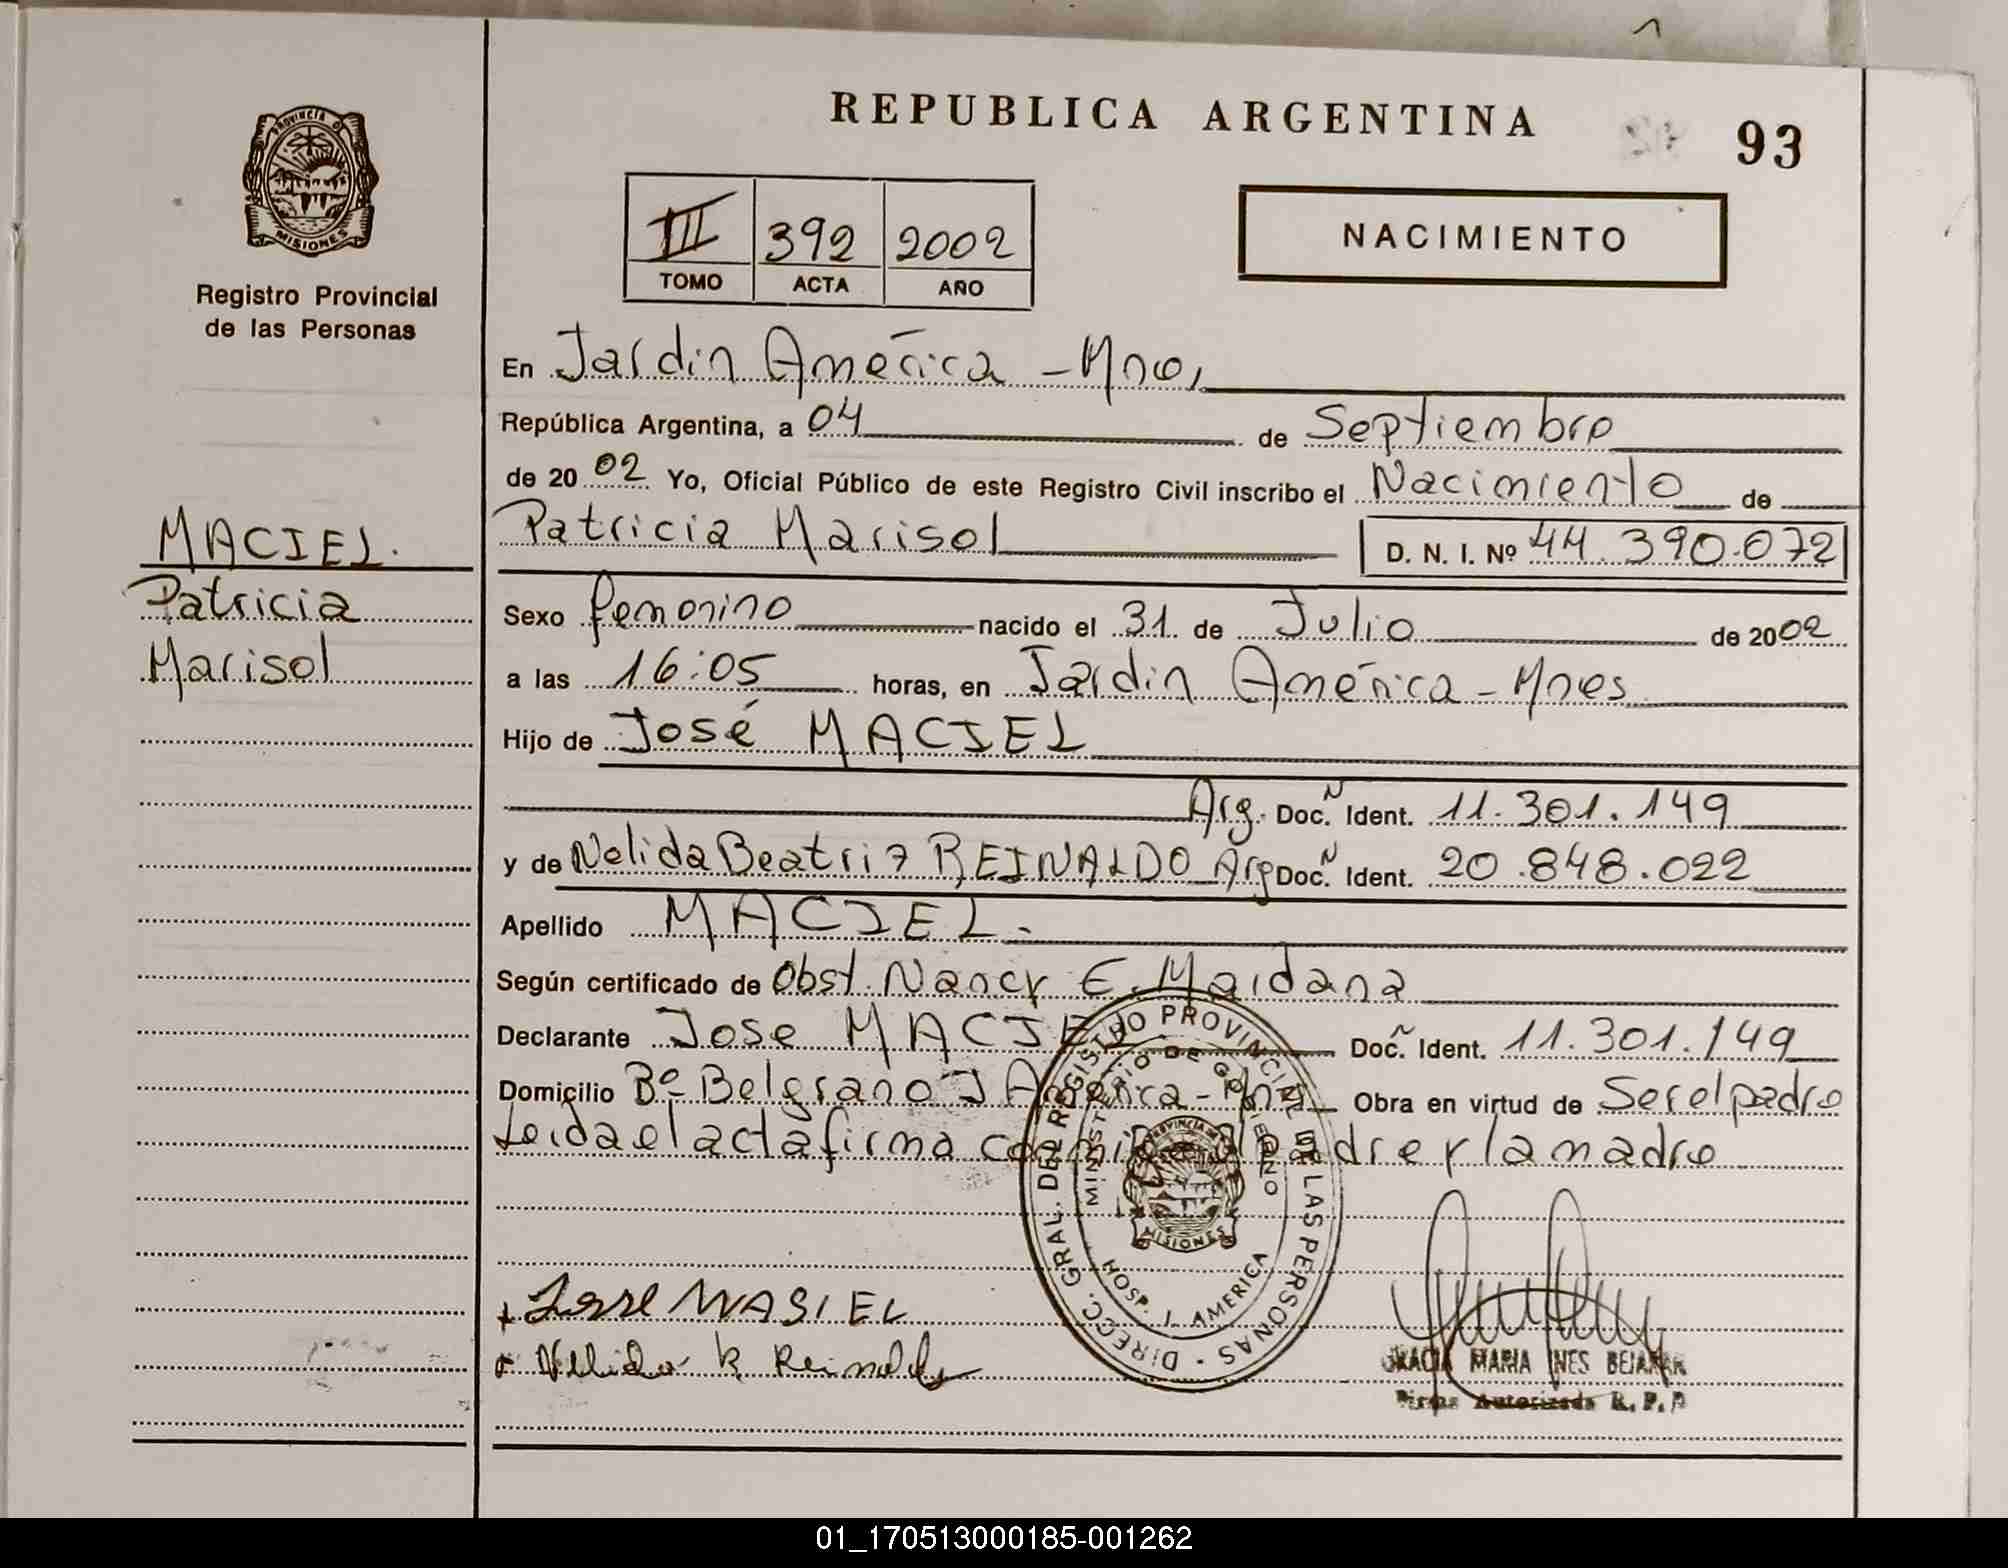 REPUBLICA ARGENTINA
93
PROVINCIA D
MISIONES
Registro Provincial
de las Personas
III 392 2002
TOMO ACTA AÑO
NACIMIENTO
En Jardín América - Mnes,
República Argentina, a 04 de Septiembre
de 2002 Yo, Oficial Público de este Registro Civil inscribo el Nacimiento de
Patricia Marisol D. N. I. Nº 44.390.072
MACIEL.
Patricia
Marisol
Sexo femenino nacido el 31 de Julio de 2002
a las 16:05 horas, en Jardín América - Mnes
Hijo de José MACIEL
Arg. Doc. N Ident. 11.301.149
y de Nelida Beatriz REINALDO Arg Doc. N Ident. 20.848.022
Apellido MACIEL.
Según certificado de Obst. Nancy E. Maidana
Declarante Jose MACIEL Doc. Ident. 11.301.149
Domicilio Bº Belgrano J América - Mnes Obra en virtud de Ser el padre
Leida el acta firma conmigo el padre y la madre
DIRECC. GRAL. DEL REGISTRO PROVINCIAL DE LAS PERSONAS
MINISTERIO DE GOBIERNO
PROVINCIA DE
MISIONES
HOSP. J. AMERICA
Jose MASIEL
Nelida B Reinaldo
GRACIA MARIA INES BEJARAR
Firma Autorizada R. P. P
01_170513000185-001262